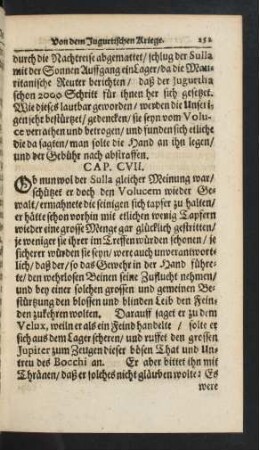 Von dem Jugurtischen Kriege. 151
durch die Nachtreise abgemattet / schlug der Sulla
mit der Sonnen Auffgang ein Lager / da die Mau-
ritanische Reuter berichten / daß der Jugurtha
schon 2000 Schritt für ihnen her sich gesetzet.
Wie dieses lautbar geworden / werden die Unseri-
gen sehr bestürtzet / gedencken / sie seyn vom Volu-
ce verrathen und betrogen / und funden sich etliche
die da sagten / man solte die Hand an ihn legen /
und der Gebühr nach abstraffen.
CAP. CVII.
Ob nun wol der Sulla gleicher Meinung war /
schützet er doch den Volucem wieder Ge-
walt / ermahnete die seinigen sich tapfer zu halten /
er hätte schon vorhin mit etlichen wenig Tapfern
wieder eine grosse Menge gar glücklich gestritten /
je weniger sie ihrer im Treffen würden schonen / je
sicherer würden sie seyn / were auch unverantwort-
lich / daß der / so das Gewehr in der Hand führe-
te / den wehrlosen Beinen seine Zuflucht nehmen /
und bey einer solchen grossen und gemeinen Be-
stürtzung den blossen und blinden Leib den Fein-
den zukehren wolten. Darauff saget er zu dem
Velux, weiln er als ein Feind handelte / solte er
sich aus dem Lager scheren / und ruffet den grossen
Jupiter zum Zeugen dieser bösen That und Un-
treu des Bocchi an. Er aber bittet ihn mit
Thränen / daß er solches nicht gläuben wolte: Es
were